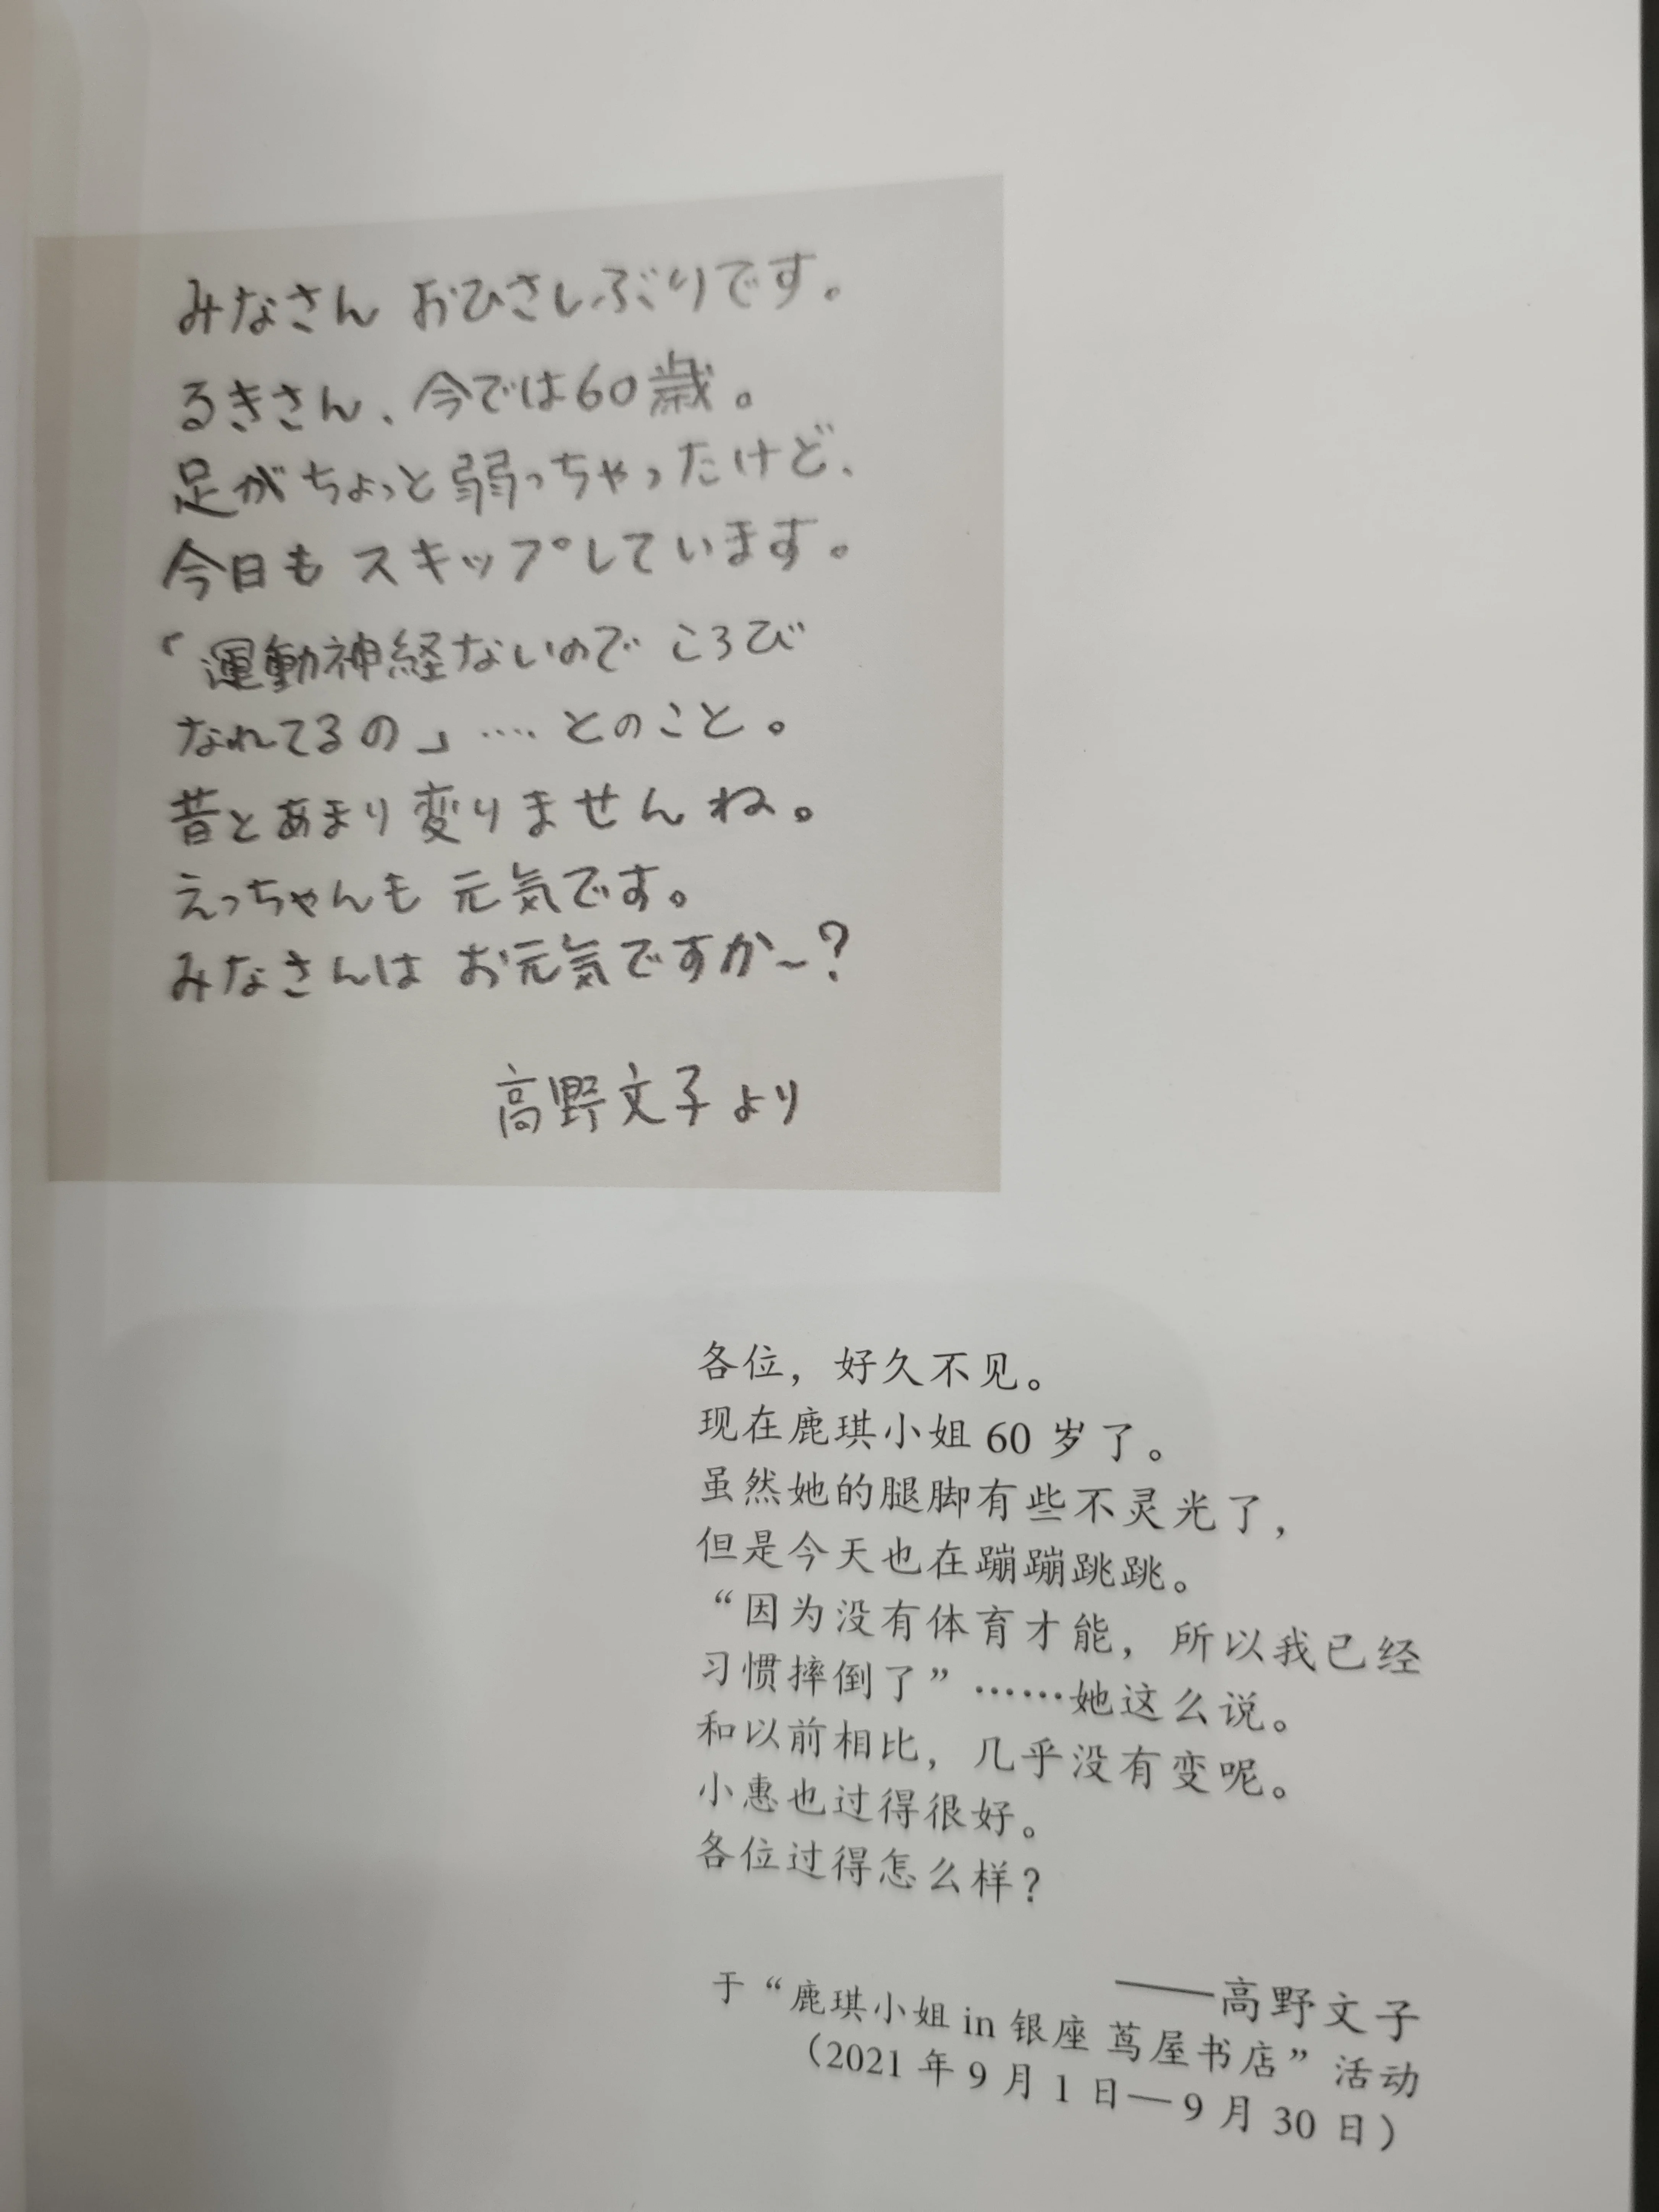 みなさん おひさしぶりです。
るきさん、今では60歳。
足がちょっと弱っちゃったけど、
今日もスキップしています。
「運動神経ないので ころび
なれてるの」‥‥とのこと。
昔とあまり変りませんね。
えっちゃんも 元気です。
みなさんは お元気ですか～?
高野文子より
各位，好久不见。
现在鹿琪小姐 60 岁了。
虽然她的腿脚有些不灵光了，
但是今天也在蹦蹦跳跳。
“因为没有体育才能，所以我已经
习惯摔倒了”……她这么说。
和以前相比，几乎没有变呢。
小惠也过得很好。
各位过得怎么样？
——高野文子
于“鹿琪小姐 in 银座 茑屋书店”活动
（2021 年 9 月 1 日—9 月 30 日）